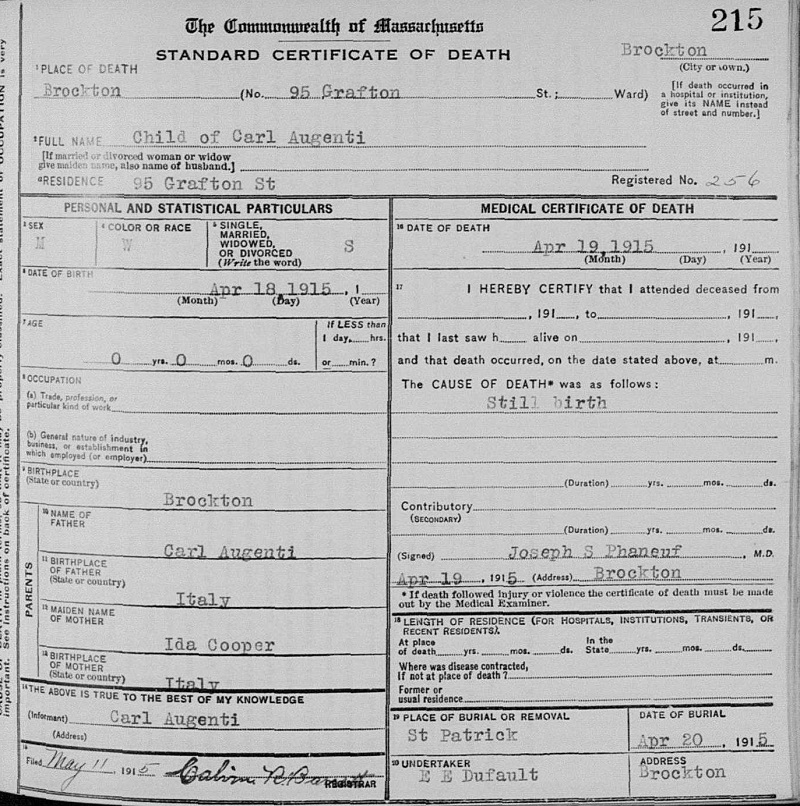 The Commonwealth of Massachusetts
215
STANDARD CERTIFICATE OF DEATH
Brockton
(City or town.)
1 PLACE OF DEATH
Brockton (No. 95 Grafton St.; Ward)
[If death occurred in a hospital or institution, give its NAME instead of street and number.]
2 FULL NAME Child of Carl Augenti
[If married or divorced woman or widow
give maiden name, also name of husband.]
RESIDENCE 95 Grafton St
Registered No. 256
PERSONAL AND STATISTICAL PARTICULARS
3 SEX
M
4 COLOR OR RACE
W
5 SINGLE,
MARRIED,
WIDOWED,
OR DIVORCED
(Write the word)
S
6 DATE OF BIRTH
Apr 18, 1915, 1
(Month) (Day) (Year)
7 AGE
If LESS than
1 day, hrs.
0 yrs. 0 mos. 0 ds. or min.?
8 OCCUPATION
(a) Trade, profession, or
particular kind of work
(b) General nature of industry,
business, or establishment in
which employed (or employer)
9 BIRTHPLACE
(State or country)
Brockton
PARENTS
10 NAME OF
FATHER
Carl Augenti
11 BIRTHPLACE
OF FATHER
(State or country)
Italy
12 MAIDEN NAME
OF MOTHER
Ida Cooper
13 BIRTHPLACE
OF MOTHER
(State or country)
Italy
14 THE ABOVE IS TRUE TO THE BEST OF MY KNOWLEDGE
(Informant) Carl Augenti
(Address)
15
Filed May 11, 1915 Calvin R.
REGISTRAR
MEDICAL CERTIFICATE OF DEATH
16 DATE OF DEATH
Apr 19, 1915, 191
(Month) (Day) (Year)
17 I HEREBY CERTIFY that I attended deceased from
, 191 , to , 191 ,
that I last saw h alive on , 191 ,
and that death occurred, on the date stated above, at m.
The CAUSE OF DEATH* was as follows:
Still birth
(Duration) yrs. mos. ds.
Contributory
(SECONDARY)
(Duration) yrs. mos. ds.
(Signed) Joseph S Phaneuf, M.D.
Apr 19, 1915 (Address) Brockton
* If death followed injury or violence the certificate of death must be made
out by the Medical Examiner.
18 LENGTH OF RESIDENCE (FOR HOSPITALS, INSTITUTIONS, TRANSIENTS, OR
RECENT RESIDENTS).
At place In the
of death yrs. mos. ds. State yrs. mos. ds.
Where was disease contracted,
If not at place of death?
Former or
usual residence
19 PLACE OF BURIAL OR REMOVAL
St Patrick
DATE OF BURIAL
Apr 20, 1915
20 UNDERTAKER
E E Dufault
ADDRESS
Brockton
important. See instructions on back of certificate.